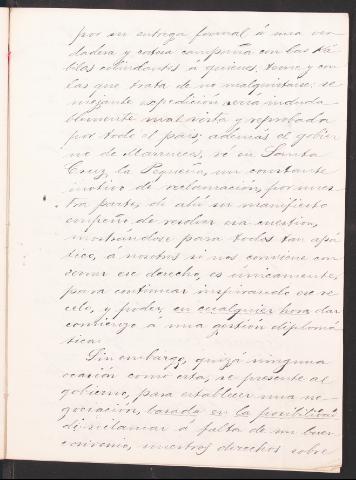 por su entrega formal á una ver-
dadera y costosa campaña con las Ká-
bilas colindantes á quienes teme y con
las que trata de no malquistarse; se-
mejante expedición sería induda-
blemente mal vista y reprobada
por todo el país; además el gobier-
no de Marruecos, vé en Santa
Cruz la Pequeña, un constante
motivo de reclamación, por nues-
tra parte, de ahí su manifiesto
empeño de resolver esa cuestión,
mostrándose para todos tan apá-
tico, á nosotros si nos conviene con-
servar ese derecho, es únicamente,
para continuar inspirando ese re-
celo, y poder, en cualquier hora dar
comienzo á una gestión diplomá-
tica.
Sin embargo, quizá ninguna
ocasión como esta, se presente al
gobierno, para establecer una ne-
gociación, basada en la posibilidad
di reclamar á falta de un buen
convenio, nuestros derechos sobre